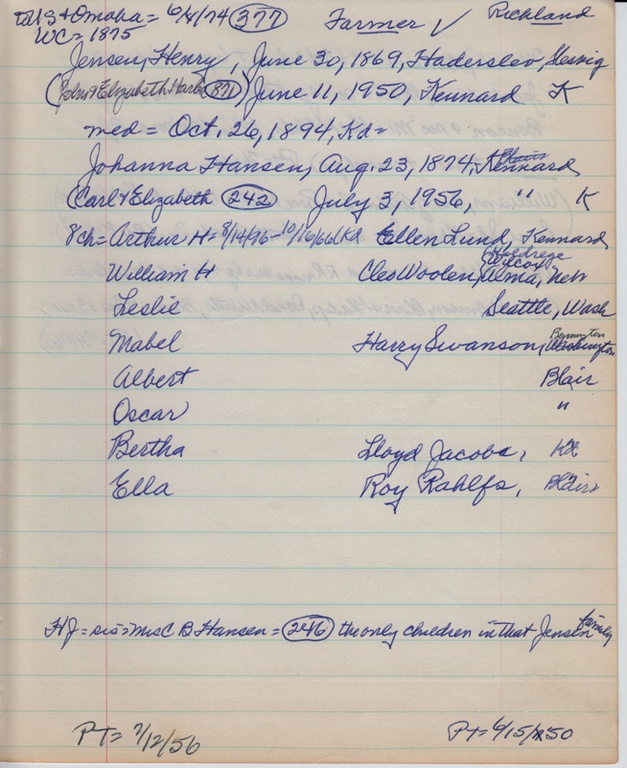 to US & Omaha = 6/4/74 (377) Farmer ✓ Richland
WC = 1875
Jensen, Henry, June 30, 1869, Haderslev, Slesvig
(John & Elizabeth (871)) June 11, 1950, Kennard K
med = Oct. 26, 1894, Kd =
Johanna Hansen, Aug. 23, 1874, Kennard
(Carl & Elizabeth (242) July 3, 1956, " K
8 ch = Arthur H = 8/14/96 - 10/16/66 Kd Ellen Lund, Kennard
Holdrege
Wilcox
William H Cleo Woolen, Uema, Neb
Leslie Seattle, Wash
Bennington
Mabel Harry Swanson, Washington
Albert Blair
Oscar "
Bertha Lloyd Jacobs,
Ella Roy Rahlfs, Blair
HJ = sis = Mrs C B Hansen = (246) the only children in that Jensen family
PT = 7/12/56 PT = 6/15/50